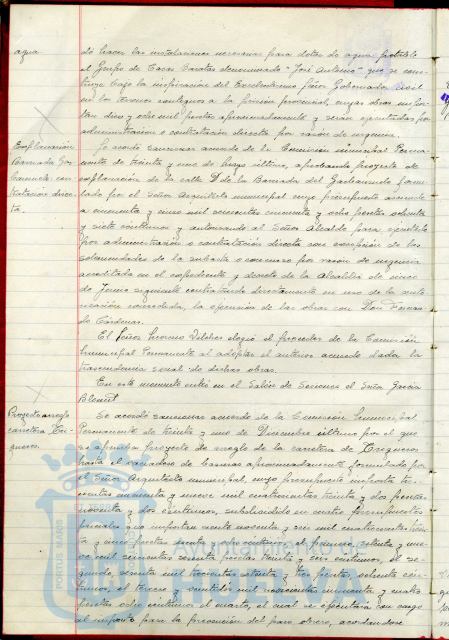 agua
do hacer las instalaciones necesarias para dotar de agua potable
al Grupo de Casas Baratas denominado "José Antonio" que se cons-
truye bajo la inspiración del Excelentísimo Señor Gobernador Civil
en los terrenos contiguos a la prisión provincial, cuyas obras impor-
tan diez y ocho mil pesetas aproximadamente y serán ejecutadas por
administración o contratación directa por razón de urgencia.
Explanación
Barriada Gar-
banzuelo con-
tratación direc-
ta.
Se acordó sancionar acuerdo de la Comisión municipal Perma-
nente de treinta y uno de Mayo último, aprobando proyecto de
explanación de la calle D de la Barriada del Garbanzuelo formu-
lado por el Señor Arquitecto municipal cuyo presupuesto asciende
a cincuenta y cinco mil seiscientas cincuenta y ocho pesetas ochenta
y siete céntimos y autorizando al Señor Alcalde para ejecutarlo
por administración o contratación directa con excepción de las
solemnidades de la subasta o concurso por razón de urgencia
acreditada en el expediente y decreto de la Alcaldía de
de Junio siguiente contratando directamente en uso de la auto-
rización concedida, la ejecución de las obras con Don
Cárdenas.
El Señor Vilches elogió el proceder de la Comisión
municipal Permanente al adoptar el anterior acuerdo dada la
trascendencia social de dichas obras.
En este momento entró en el Salón de Sesiones el Señor García
Proyecto arreglo
carretera Tri-
gueros.
Se acordó sancionar acuerdo de la Comisión Municipal
Permanente de treinta y uno de Diciembre último por el que
se aprueba proyecto de arreglo de la carretera de Trigueros
hasta el vaciadero de basuras aproximadamente formulado por
el Señor Arquitecto municipal, cuyo presupuesto importa
cincuenta y nueve mil cuatrocientas treinta y dos pesetas
noventa y dos céntimos, subdividido en cuatro presupuestos
parciales que importan ciento noventa y seis mil cuatrocientas
y cinco pesetas ochenta y ocho céntimos, el primero,
mil pesetas treinta y seis céntimos, el se-
gundo, mil trescientas setenta y tres pesetas, ochenta cén-
timos, el tercero y mil novecientas cincuenta y cuatro
pesetas ocho céntimos el cuarto, el cual se ejecutará con cargo
al importe para la prevención del paro obrero, acordándose
PORTUS MARIS
Ayuntamiento de